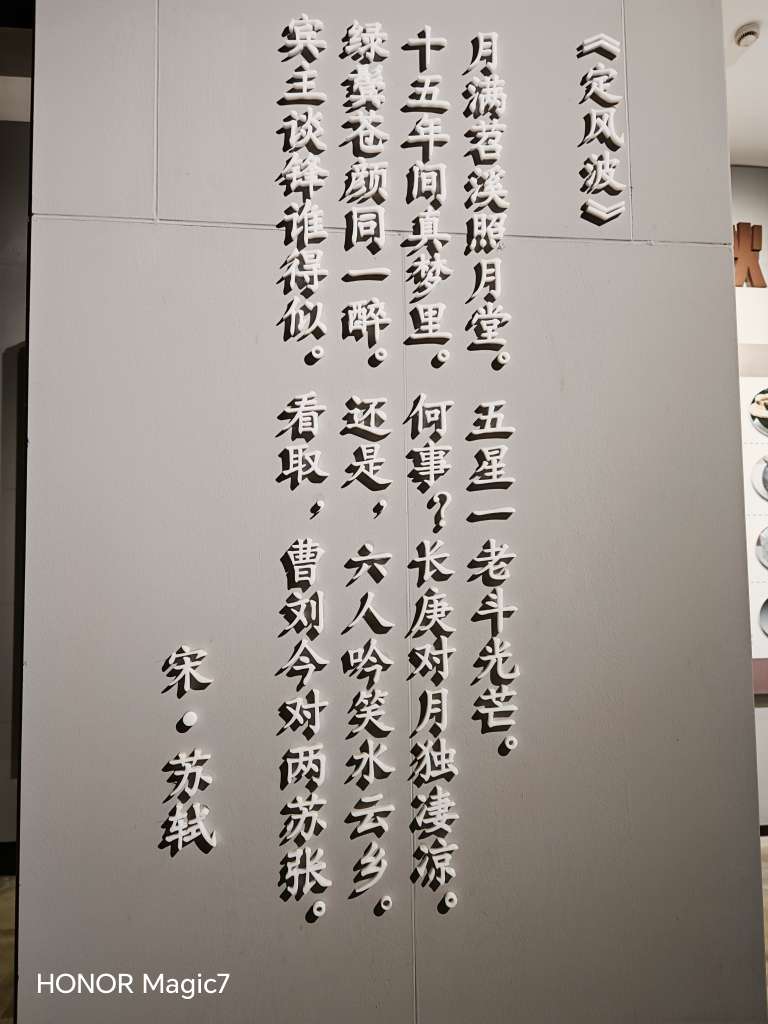 《定风波》
月满苕溪照月堂。五星一老斗光芒。
十五年间真梦里。何事？长庚对月独凄凉。
绿鬓苍颜同一醉。还是，六人吟笑水云乡。
宾主谈锋谁得似。看取，曹刘今对两苏张。
宋·苏轼
水
HONOR Magic7